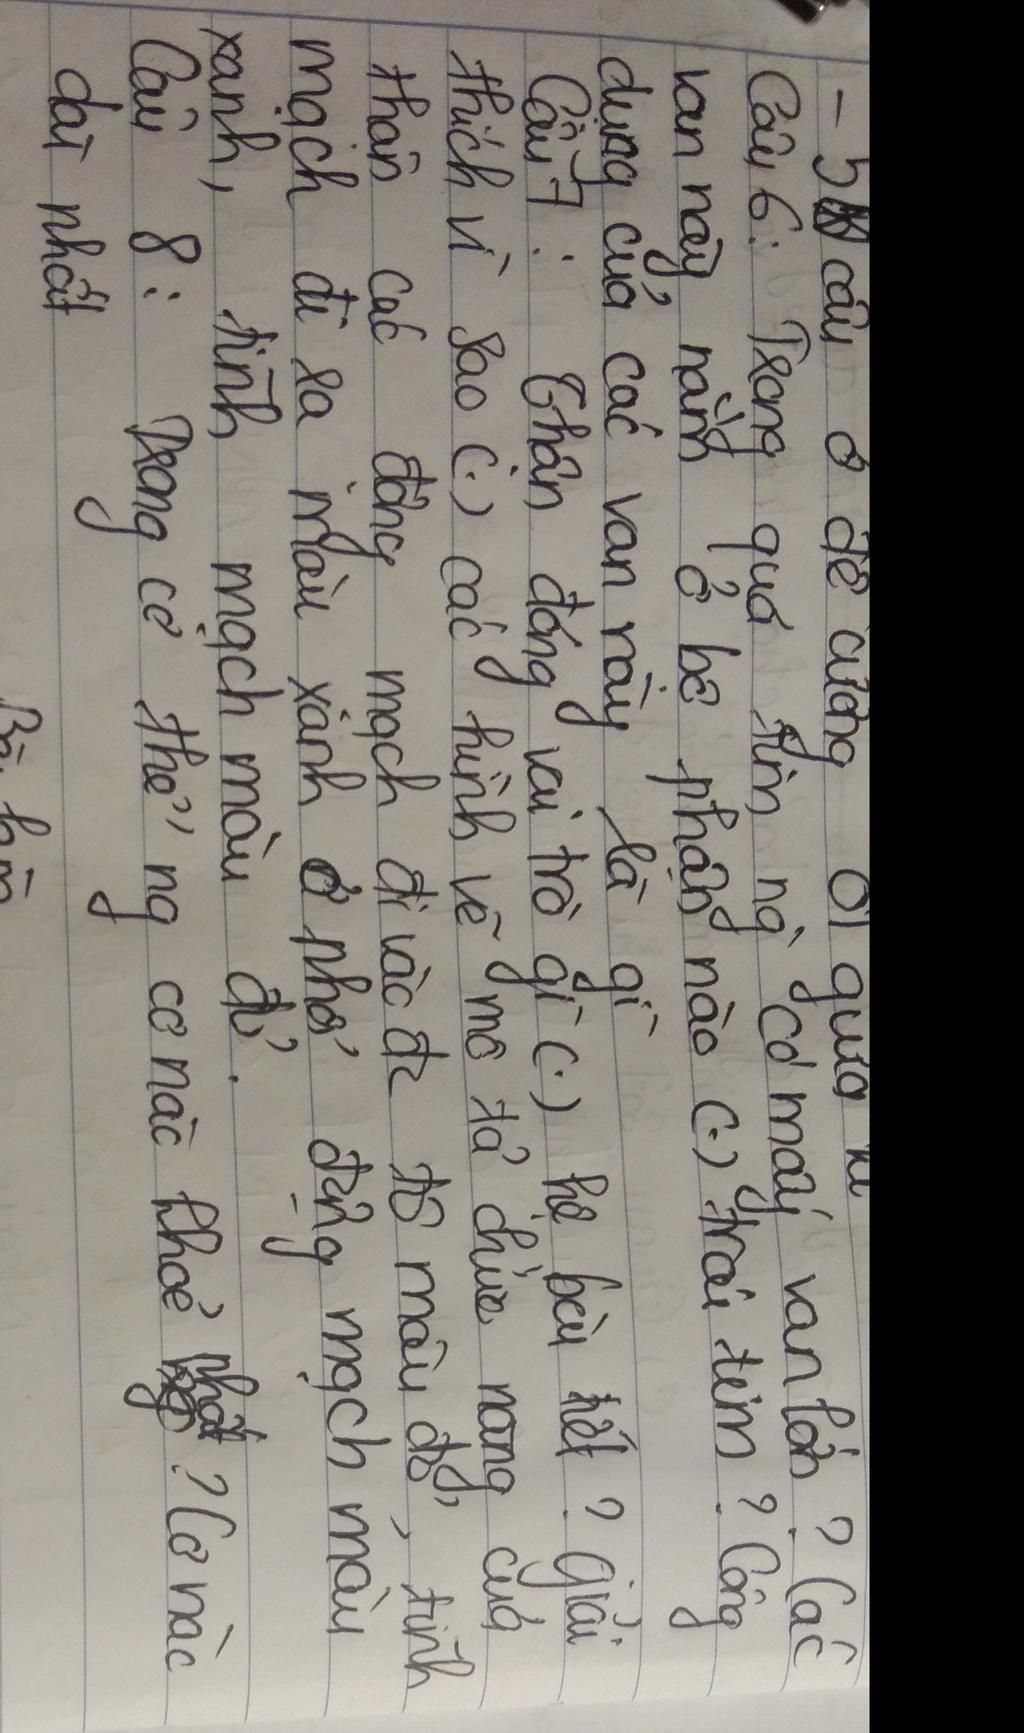 - 5 câu ở đề cương ôl qua
Câu 6: Trong quá tim ng' có mấy van lớn? Các
van nảy nằm ở bộ phận nào (.) trái tim? Công
dụng của các van này là gì
Câu 7: Thận đóng vai trò gì (.) hệ bài tiết? Giải
thích vì sao (.) các hình vẽ mô tả chức năng của
thận các động mạch đi vào đc tô màu đỏ, tĩnh
mạch đi ra màu xanh ở phổi động mạch màu
xanh, tĩnh mạch màu đỏ.
Câu 8: Trong cơ thể ng cơ nào khoẻ nhất? Cơ nào
dài nhất